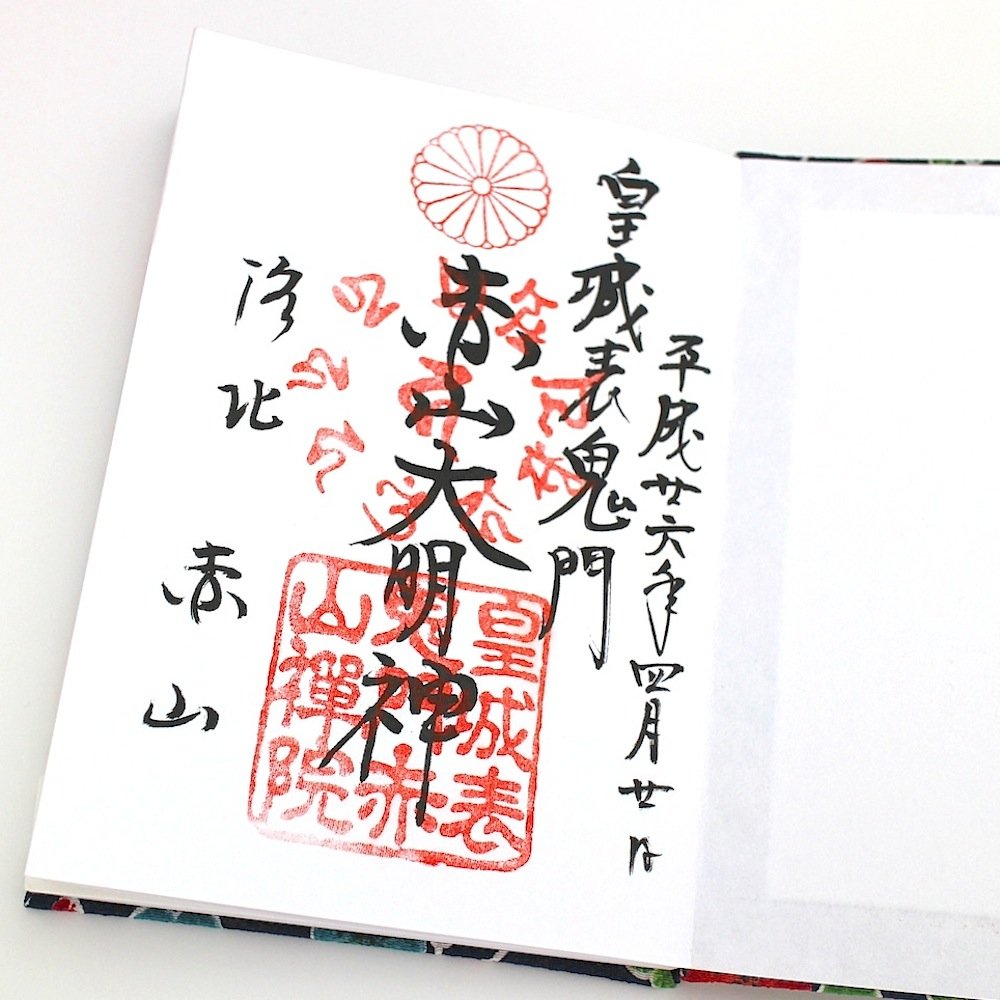 平成廿六年四月廿日
皇城表鬼門
赤山大明神
洛北赤山
皇城表
鬼門赤
山禅院